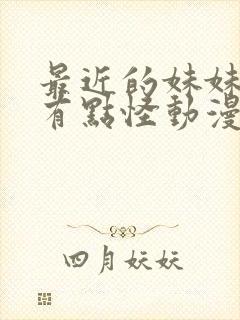 最近的妹妹
有點怪動漫
四月妖妖